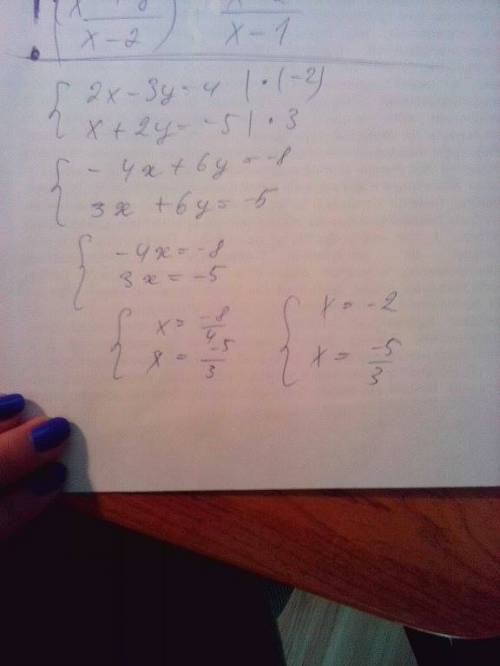 x - 2   x - 1
2x - 3y = 4 | · (-2)
x + 2y = -5 | · 3
- 4x + 6y = -8
3x + 6y = -5
-4x = -8
3x = -5
x = -8/4   x = -2
x = -5/3   x = -5/3